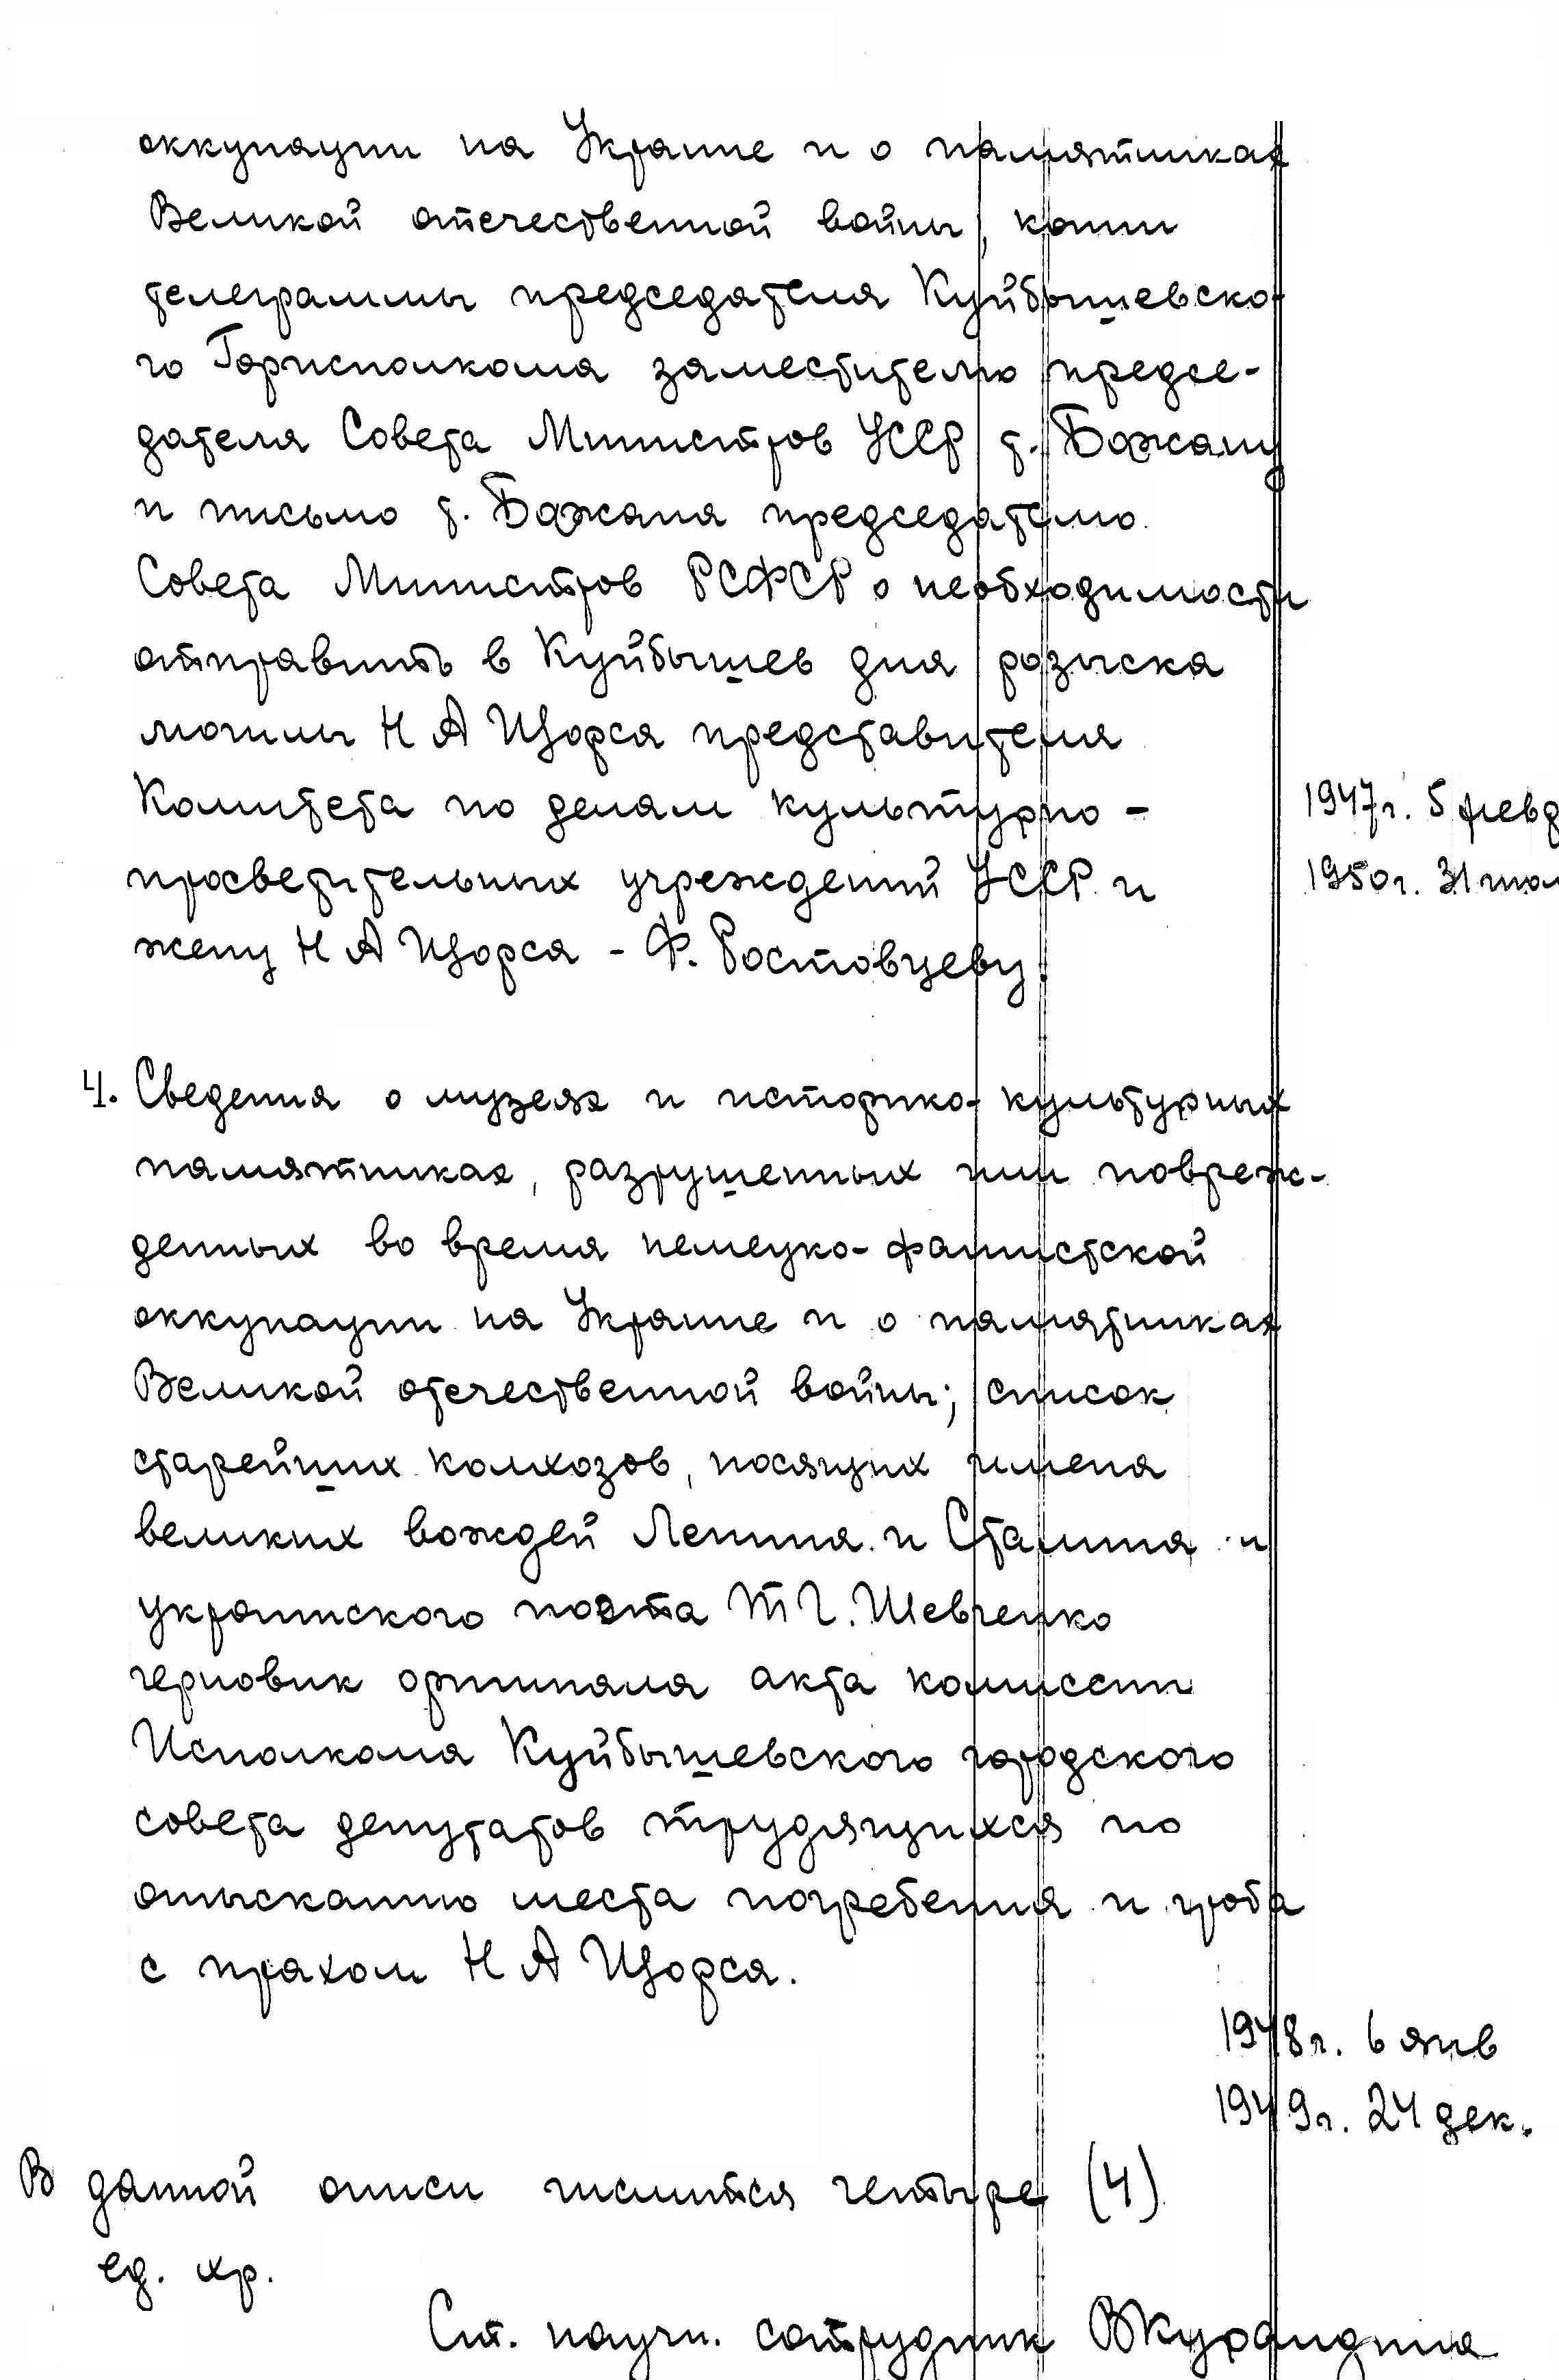 оккупации на Украине и о памятниках
Великой отечественной войны, копии
телеграммы председателя Куйбышевско-
го Горисполкома заместителю предсе-
дателя Совета Министров УССР т. Бажану
и письмо т. Бажана председателю
Совета Министров РСФСР о необходимости
отправить в Куйбышев для розыска
могилы Н А Щорса представителя
Комитета по делам культурно-
1947г. 5 февр
просветительных учреждений УССР и
1950г. 31 июл
жену Н А Щорса - Ф. Ростовцеву.
4. Сведения о музеях и историко-культурных
памятниках, разрушенных или повреж-
денных во время немецко-фашистской
оккупации на Украине и о памятниках
Великой отечественной войны; список
старейших колхозов, носящих имена
великих вождей Ленина и Сталина и
украинского поэта Т Г. Шевченко
черновик оригинала акта комиссии
Исполкома Куйбышевского городского
совета депутатов трудящихся по
отысканию места погребения и гроба
с прахом Н А Щорса.
1948г. 6 янв
1949г. 24 дек.
В данной описи числится четыре (4)
ед. хр.
Ст. научн. сотрудник